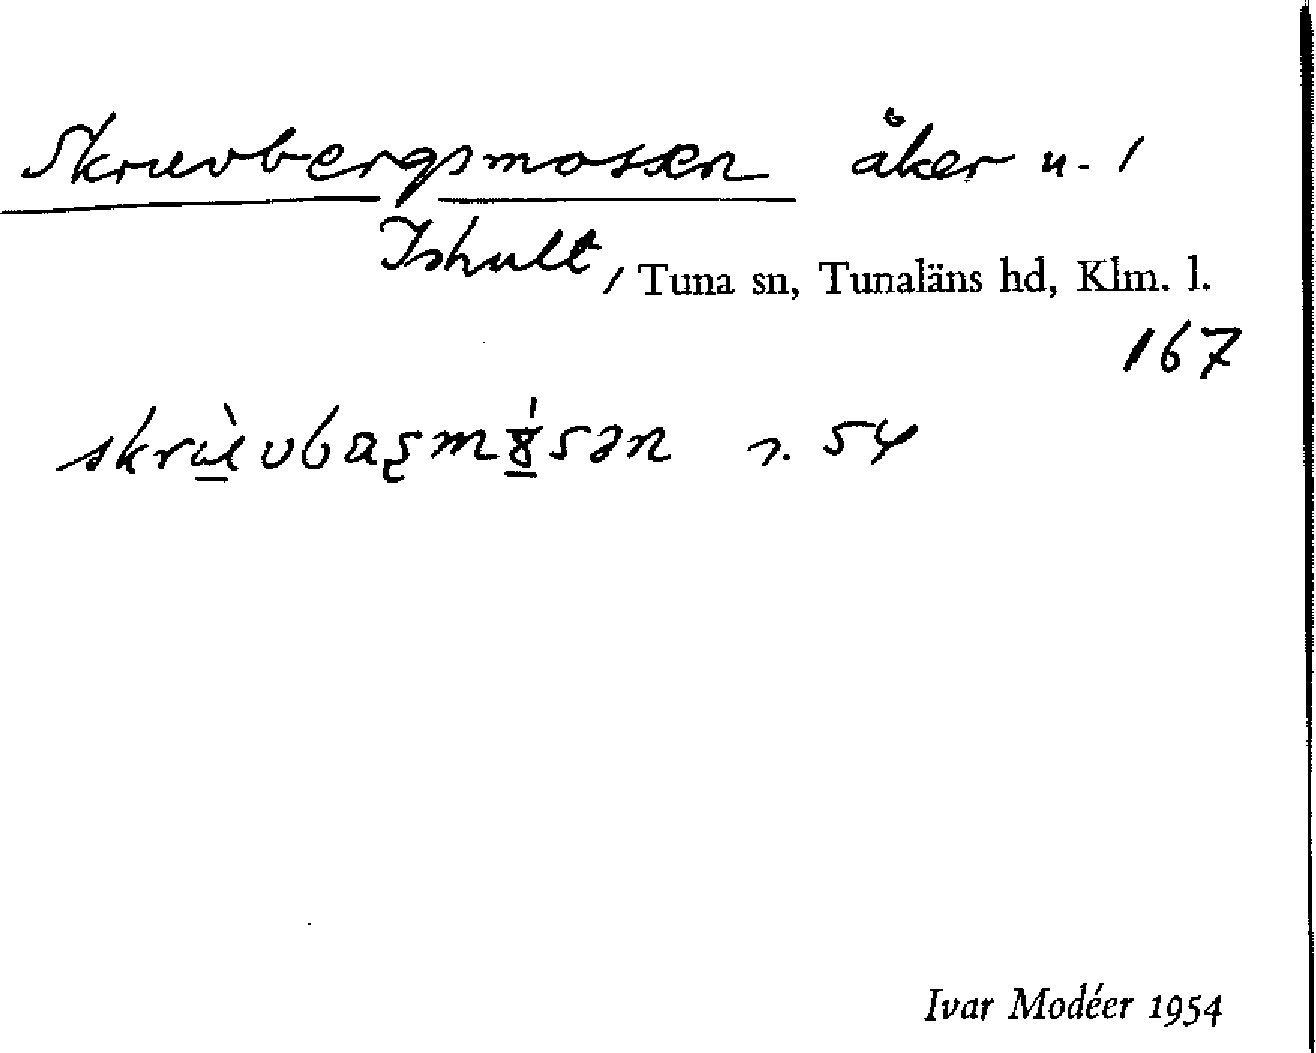 Skruvbergsmossen åker u. 1
Ishult, Tuna sn, Tunaläns hd, Klm. l.
167
54
Ivar Modéer 1954